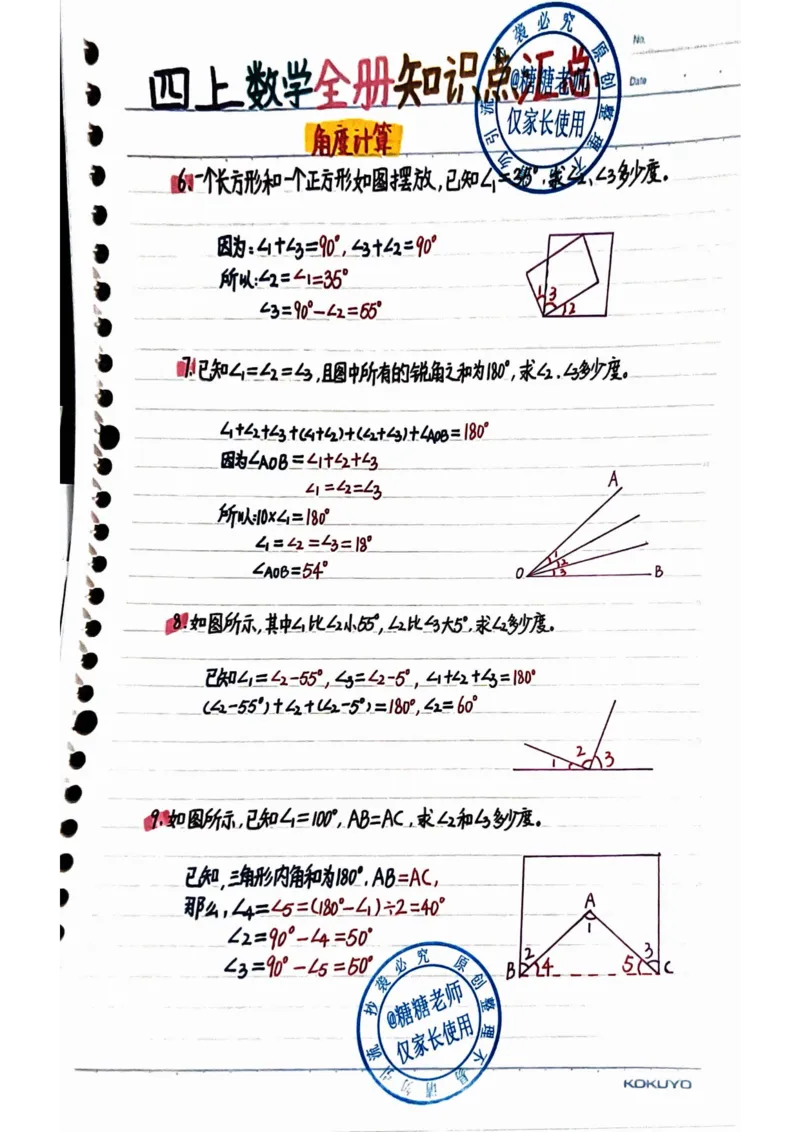 No.
Date
四上数学全册知识点汇总
角度计算
6.一个长方形和一个正方形如图摆放,已知∠1=35°,求∠2、∠3多少度。
因为:∠1+∠3=90°,∠3+∠2=90°
所以:∠2=∠1=35°
∠3=90°-∠2=55°
1 3
2
7.已知∠1=∠2=∠3,且图中所有的锐角之和为180°,求∠2.∠3多少度。
∠1+∠2+∠3+(∠1+∠2)+(∠2+∠3)+∠AOB=180°
因为∠AOB=∠1+∠2+∠3
∠1=∠2=∠3
所以:10×∠1=180°
∠1=∠2=∠3=18°
∠AOB=54°
A
1
2
O 3 B
8.如图所示,其中∠1比∠2小55°,∠2比∠3大5°,求∠2多少度。
已知∠1=∠2-55°,∠3=∠2-5°,∠1+∠2+∠3=180°
(∠2-55°)+∠2+(∠2-5°)=180°,∠2=60°
1 2 3
9.如图所示,已知∠1=100°,AB=AC,求∠2和∠3多少度。
已知,三角形内角和为180°.AB=AC,
那么,∠4=∠5=(180°-∠1)÷2=40°
∠2=90°-∠4=50°
∠3=90°-∠5=50°
A
1
2 3
B 4 5 C
@糖糖老师
仅家长使用
原创整理 不易请勿引流 抄袭必究
@糖糖老师
仅家长使用
原创整理不易请勿引流 抄袭必究
KOKUYO